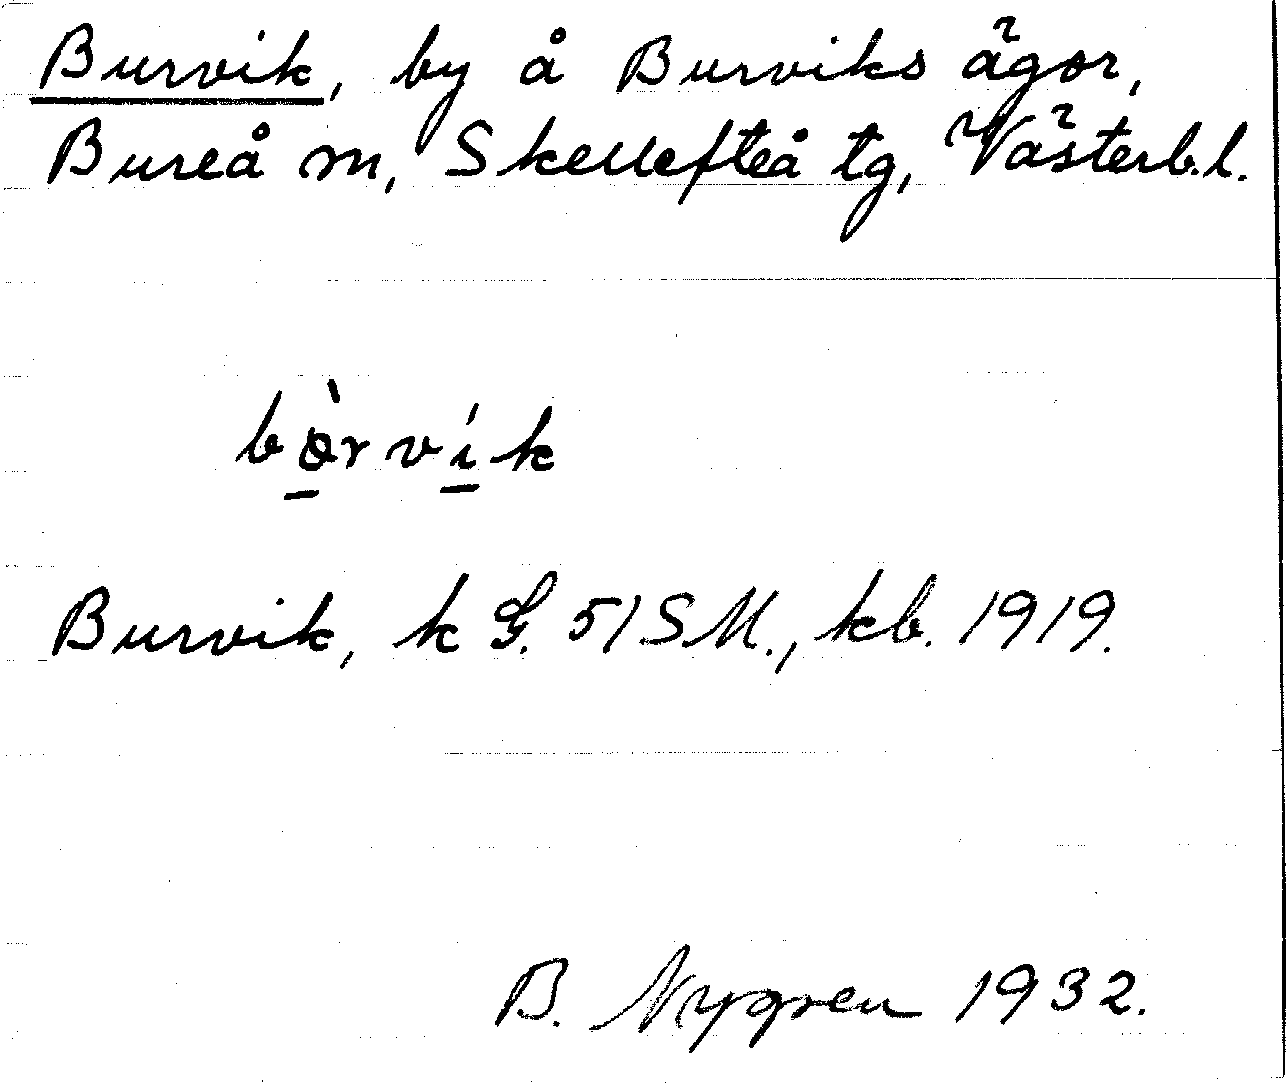 Burvik, by å Burviks ägor,
Bureå m, Skellefteå tg, Västerb.l.
bə̠̀rví̠k
Burvik, k G. 51 SM., kb. 1919.
B. Nygren 1932.